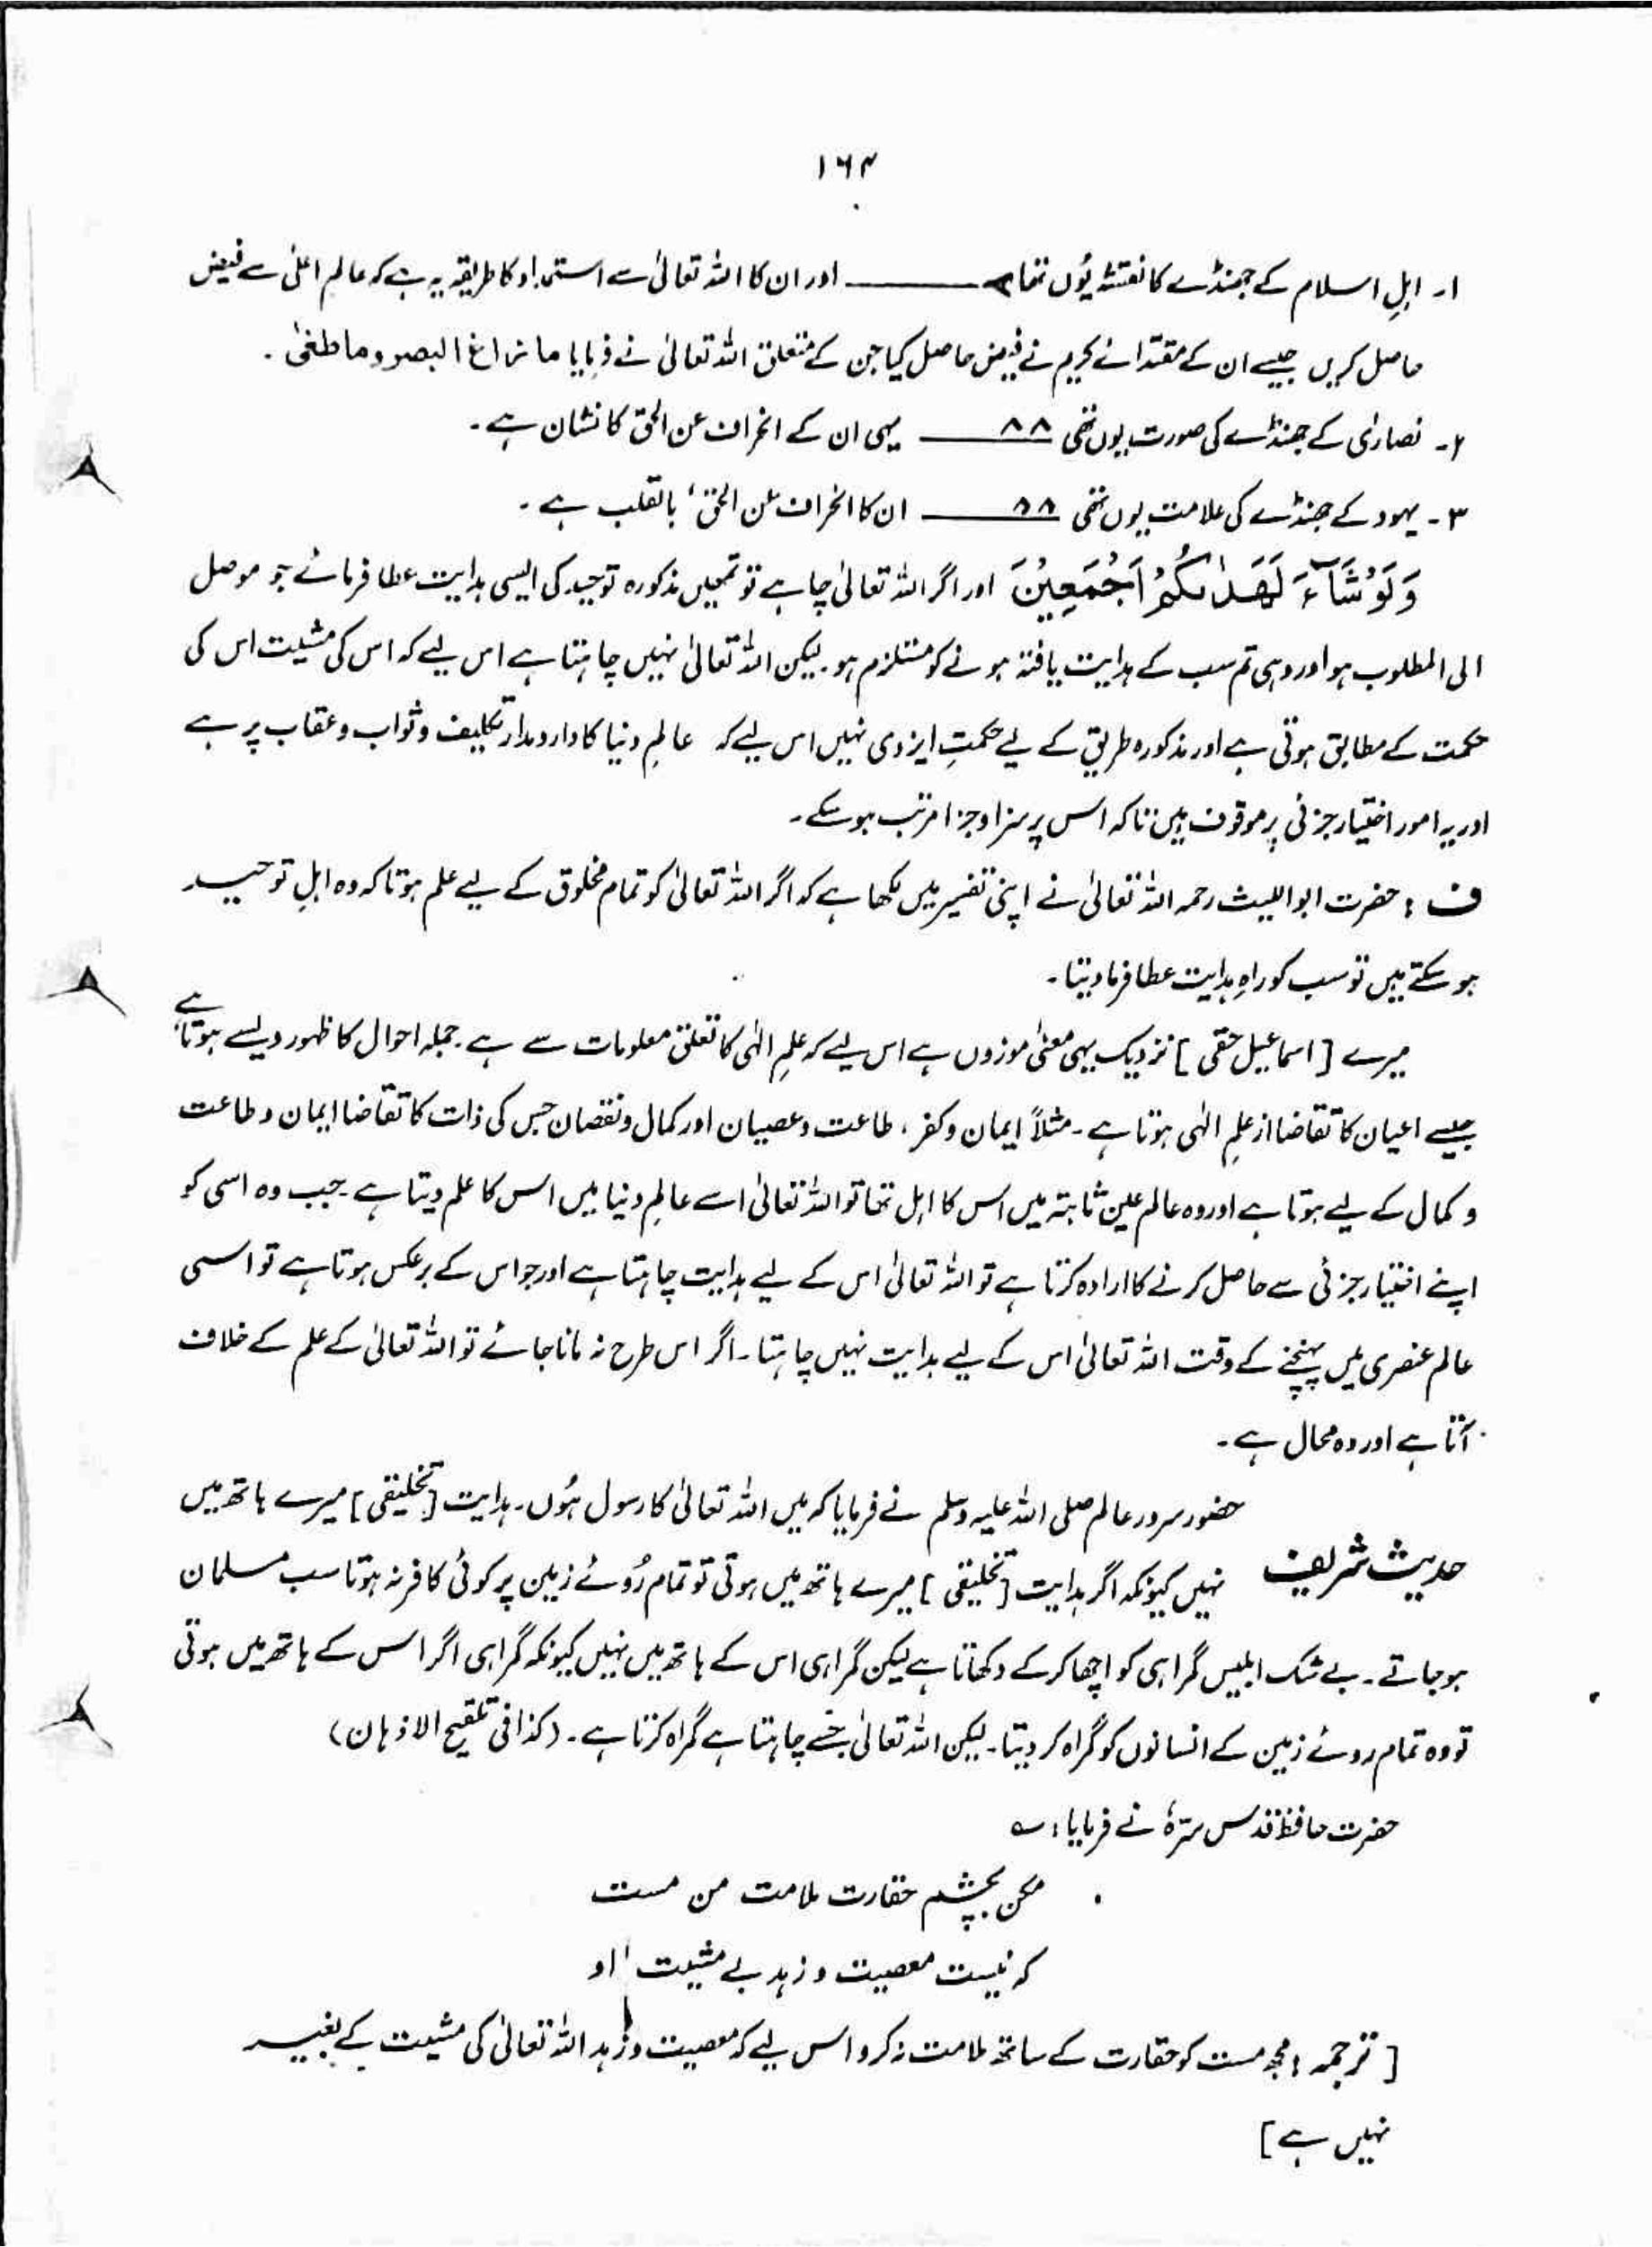 ۱۶۴
۱۔ اہلِ اسلام کے جھنڈے کا نقشہ یُوں تھا ــــــــ اور ان کا اللہ تعالیٰ سے استمداد کا طریقہ یہ ہے کہ عالمِ اعلیٰ سے فیض
حاصل کریں جیسے ان کے مقتدائے کریم نے فیض حاصل کیا جن کے متعلق اللہ تعالیٰ نے فرمایا ما زاغ البصر وما طغیٰ ۔
۲۔ نصاریٰ کے جھنڈے کی صورت یوں تھی ۸۸ ــــــــ یہی ان کے انحراف عن الحق کا نشان ہے ۔
۳۔ یہود کے جھنڈے کی علامت یوں تھی ۸۸ ــــــــ ان کا انحراف عن الحق، بالقلب ہے ۔
وَلَوْ شَآءَ لَھَدٰىکُمْ اَجْمَعِیْنَ اور اگر اللہ تعالیٰ چاہے تو تمھیں مذکورہ توحید کی ایسی ہدایت عطا فرمائے جو موصل
الی المطلوب ہو اور وہی تم سب کے ہدایت یافتہ ہونے کو مستلزم ہو۔ لیکن اللہ تعالیٰ نہیں چاہتا ہے اس لیے کہ اس کی مشیت اس کی
حکمت کے مطابق ہوتی ہے اور مذکورہ طریق کے لیے حکمتِ ایزدی نہیں اس لیے کہ عالمِ دنیا کا دارومدار تکلیف و ثواب و عقاب پر ہے
اور یہ امور اختیار جزئی پر موقوف ہیں تاکہ اس پر سزا و جزا مرتب ہو سکے ۔
ف : حضرت ابواللیث رحمہ اللہ تعالیٰ نے اپنی تفسیر میں لکھا ہے کہ اگر اللہ تعالیٰ کو تمام مخلوق کے لیے علم ہوتا کہ وہ اہلِ توحید
ہو سکتے ہیں تو سب کو راہِ ہدایت عطا فرما دیتا ۔
میرے [ اسماعیل حقی ] نزدیک یہی معنیٰ موزوں ہے اس لیے کہ علمِ الٰہی کا تعلق معلومات سے ہے۔ جملہ احوال کا ظہور ویسے ہوتا ہے
جیسے اعیان کا تقاضا از علمِ الٰہی ہوتا ہے ۔ مثلاً ایمان و کفر ، طاعت و عصیان اور کمال و نقصان جس کی ذات کا تقاضا ایمان و طاعت
و کمال کے لیے ہوتا ہے اور وہ عالم عین ثابتہ میں اس کا اہل تھا تو اللہ تعالیٰ اسے عالمِ دنیا میں اس کا علم دیتا ہے ۔ جب وہ اسی کو
اپنے اختیار جزئی سے حاصل کرنے کا ارادہ کرتا ہے تو اللہ تعالیٰ اس کے لیے ہدایت چاہتا ہے اور جو اس کے برعکس ہوتا ہے تو اسی
عالم عنصری میں پہنچنے کے وقت اللہ تعالیٰ اس کے لیے ہدایت نہیں چاہتا ۔ اگر اس طرح نہ مانا جائے تو اللہ تعالیٰ کے علم کے خلاف
آتا ہے اور وہ محال ہے ۔
حضور سرور عالم صلی اللہ علیہ وسلم نے فرمایا کہ میں اللہ تعالیٰ کا رسول ہُوں ۔ ہدایت [تخلیقی] میرے ہاتھ میں
حدیث شریف نہیں کیونکہ اگر ہدایت [تخلیقی] میرے ہاتھ میں ہوتی تو تمام رُوئے زمین پر کوئی کافر نہ ہوتا سب مسلمان
ہوجاتے ۔ بے شک ابلیس گمراہی کو اچھا کر کے دکھاتا ہے لیکن گمراہی اس کے ہاتھ میں نہیں کیونکہ گمراہی اگر اس کے ہاتھ میں ہوتی
تو وہ تمام روئے زمین کے انسانوں کو گمراہ کر دیتا ۔ لیکن اللہ تعالیٰ جسے چاہتا ہے گمراہ کرتا ہے ۔ (کذا فی تلقیح الاذہان)
حضرت حافظ قدس سرہٗ نے فرمایا : ؎
مکن بچشم حقارت ملامت من مست
کہ نیست معصیت و زہد بے مشیت او
[ ترجمہ : مجھ مست کو حقارت کے ساتھ ملامت نہ کرو اس لیے کہ معصیت و زہد اللہ تعالیٰ کی مشیت کے بغیر
نہیں ہے ]